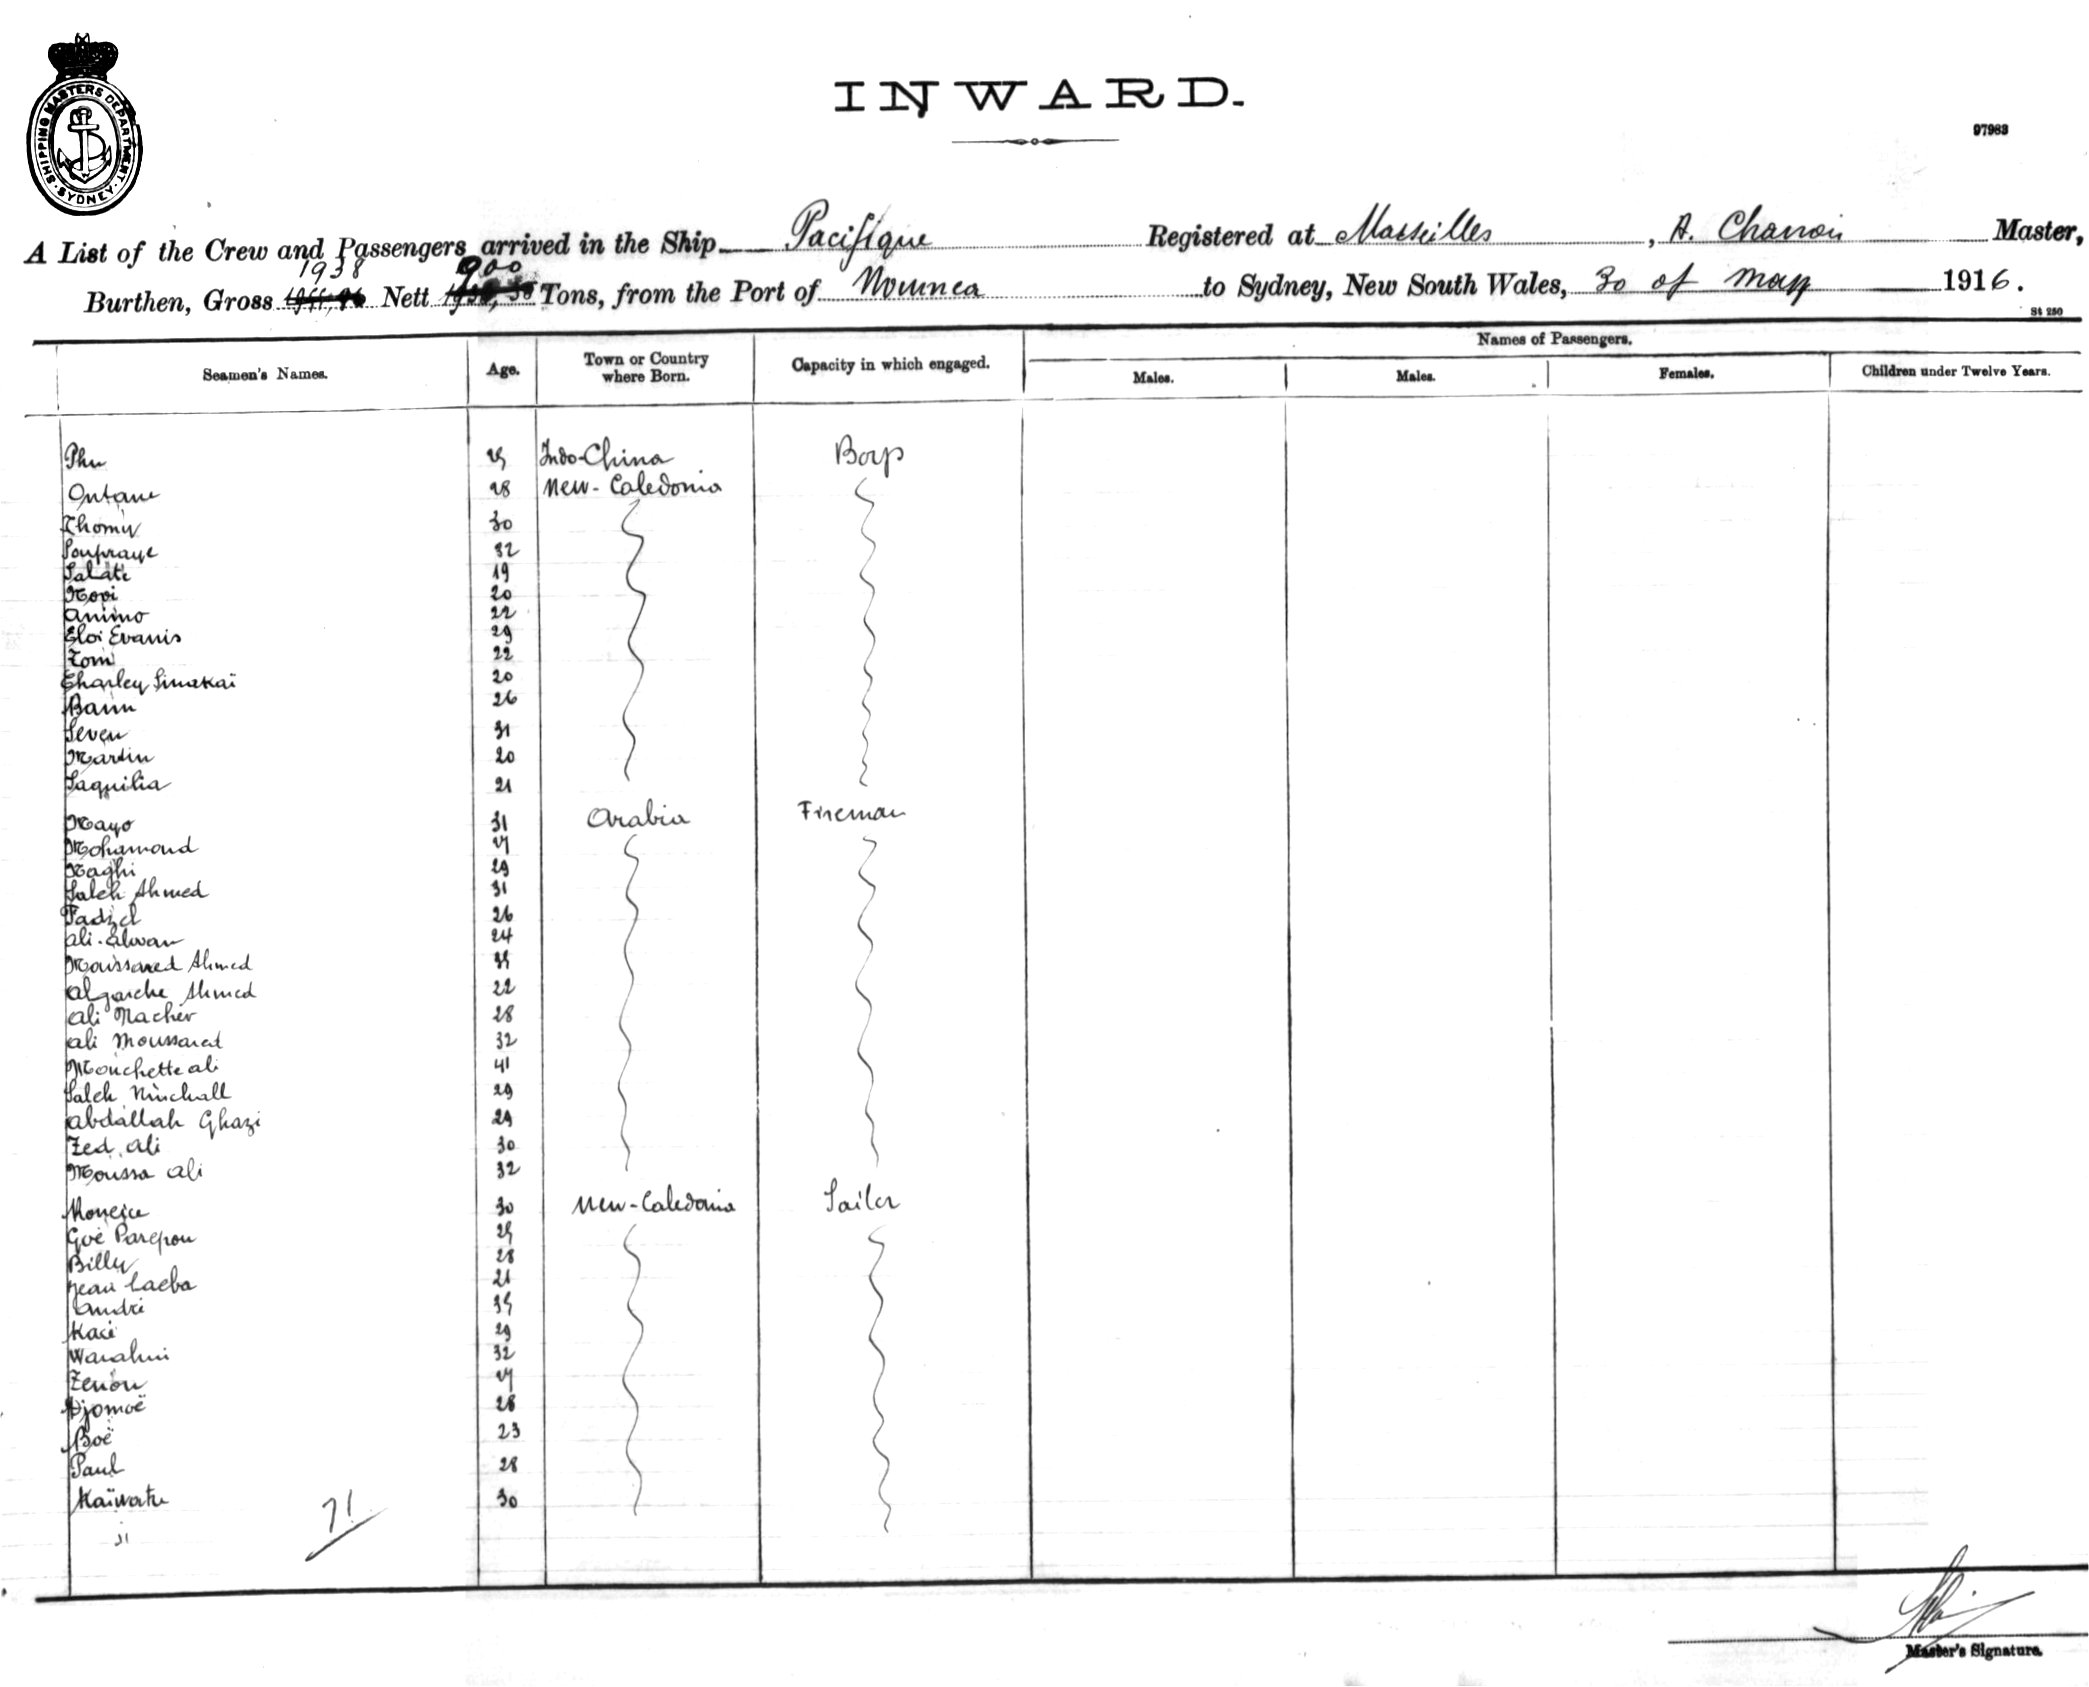 SHIPPING MASTERS DEPARTMENT · SYDNEY ·
INWARD.
97983
A List of the Crew and Passengers arrived in the Ship Pacifique Registered at Marseilles, A. Master,
1938 900
Burthen, Gross Nett Tons, from the Port of Noumea to Sydney, New South Wales, 30 of May 1916.
St 250
Seamen's Names. Age. Town or Country where Born. Capacity in which engaged. Names of Passengers.
Males. Males. Females. Children under Twelve Years.
Phu 25 Indo-China Boys
Ontane 28 New-Caledonia
Thomy 30
32
Salate 19
20
Animo 22
Eloi Evanis 29
Tom 22
Charley 20
Banu 26
Seven 31
Martin 20
Saquilia 21
Mayo 31 Arabia Fireman
Mohamoud 27
Naghi 29
Saleh Ahmed 31
Fadzel 26
Ali-Elwan 24
Moussared Ahmed 35
Ahmed 22
Ali Nacher 28
Ali Moussared 32
Mouchette Ali 41
Saleh 29
Abdallah Ghazi 29
Zed Ali 30
Moussa Ali 32
30 New-Caledonia Sailor
Goé 25
Billy 28
Jean 21
André 35
Kacé 29
32
Zenon 27
Djomoë 28
Boë 23
Paul 28
30
71
Master's Signature.